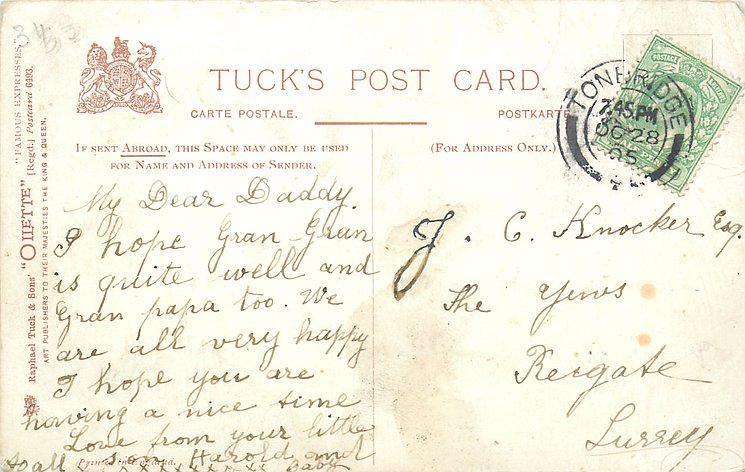 343
TUCK'S POST CARD.
CARTE POSTALE.
POSTKARTE.
IF SENT ABROAD, THIS SPACE MAY ONLY BE USED
FOR NAME AND ADDRESS OF SENDER.
(For Address Only.)
"FAMOUS EXPRESSES"
Raphael Tuck & Sons' "OILETTE" [Regd.] Postcard 6493.
ART PUBLISHERS TO THEIR MAJESTIES THE KING & QUEEN.
POSTAGE
TONBRIDGE
7.45PM
OC 28
05
My Dear Daddy.
I hope Gran-Gran
is quite well and
Gran papa too. We
are all very happy
I hope you are
having a nice time
Love from your little
son Harold and
to all xxxxxxxx Baby
Printed in
J. C. Knocker Esq.
The Yews
Reigate
Surrey